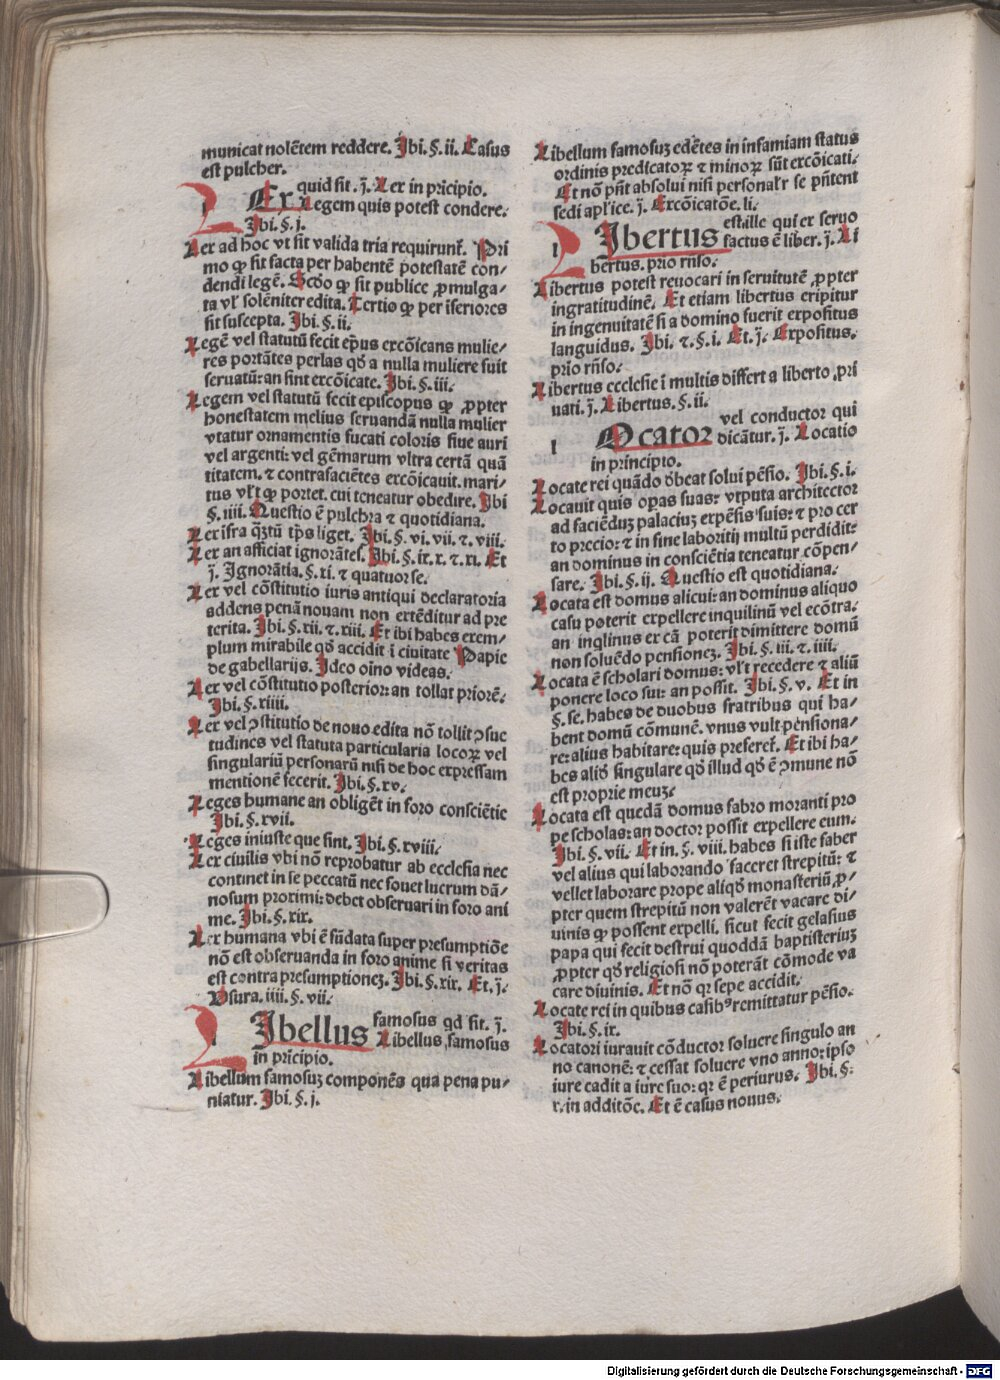 municat nolētem reddere. Ibi. §. ii. Casus
est pulcher.
LEx quid sit. j̄. Lex in pricipio.
Legem quis potest condere.
Ibi. §. j.
Lex ad hoc vt sit valida tria requirunt᷑. Pri
mo ꝙ sit facta per habentē potestatē con/
dendi legē. Scd́o ꝙ sit publice ꝓmulga/
ta vl᷑ solēniter edita. Tertio ꝙ per iferiores
sit suscepta. Ibi. §. ii.
Legē vel statutū fecit ep̄us excōicans mulie/
res portātes perlas qd́ a nulla muliere fuit
seruatū: an sint excōicate. Ibi. §. iii.
Legem vel statutū fecit episcopus ꝙ ꝓpter
honestatem melius seruandā nulla mulier
vtatur ornamentis fucati coloris siue auri
vel argenti: vel gēmarum vltra certā quā
titatem. ⁊ contrafaciētes excōicauit. mari/
tus vl᷑t ꝙ portet. cui teneatur obedire. Ibi
§. iiii. Questio ē pulchra ⁊ quotidiana.
Lex ifra q̄ztū tp̄s liget. Ibi. §. vi. vii. ⁊. viii.
Lex an afficiat ignorātes. Ibi. §. ix. x. ⁊. xi. Et
j̄. Ignorātia. §. xi. ⁊ quatuor se.
Lex vel cōstitutio iuris antiqui declaratoria
addens penā nouam non extēditur ad pre
terita. Ibi. §. xii. ⁊. xiii. Et ibi habes exem/
plum mirabile qd́ accidit i ciuitate Papie
de gabellarijs. Ideo oīno videas.
Lex vel cōstitutio posterior: an tollat priorē.
Ibi. §. xiiii.
Lex vel ꝯstitutio de nouo edita nō tollit ꝯsue
tudines vel statuta particularia locoꝝ vel
singulariū personarū nisi de hoc expressam
mentionē fecerit. Ibi. §. xv.
Leges humane an obligēt in foro consciētie
Ibi. §. xvii.
Leges iniuste que sint. Ibi. §. xviii.
Lex ciuilis vbi nō reprobatur ab ecclesia nec
continet in se peccatū nec fouet lucrum dā/
nosum proximi: debet obseruari in foro ani
me. Ibi. §. xix.
Lex humana vbi ē fūdata super presumptiōe
nō est obseruanda in foro anime si veritas
est contra presumptionez. Ibi. §. xix. Et. j̄.
Vsura. iiii. §. vii.
LIbellus famosus qd sit. j̄.
Libellus famosus
in pricipio.
Libellum famosuz componēs qua pena pu/
niatur. Ibi. §. j.
Libellum famosuz edētes in infamiam status
ordinis predicatoꝝ ⁊ minoꝝ sūt excōicati.
Et nō pn̄t absolui nisi personal᷑r se pn̄tent
sedi apl᷑ice. j̄. Excōicatōe. li.
LIbertus est ille qui ex seruo
factus ē liber. j̄. Li
bertus. prio rn̄so.
Libertus potest reuocari in seruitutē ꝓpter
ingratitudinē. Et etiam libertus eripitur
in ingenuitatē si a domino fuerit expositus
languidus. Ibi. ⁊. §. i. Et. j̄. Expositus.
prio rn̄so.
Libertus ecclesie i multis differt a liberto pri
uati. j̄. Libertus. §. ii.
lOcator vel conductor qui
dicātur. j̄. Locatio
in principio.
Locate rei quādo d́beat solui pēsio. Ibi. §. i.
Locauit quis oꝑas suas: vtputa architector
ad faciēduz palaciuz expēsis suis: ⁊ pro cer
to precio: ⁊ in fine laboritij multū perdidit:
an dominus in consciētia teneatur cōpen/
sare. Ibi. §. ij. Questio est quotidiana.
Locata est domus alicui: an dominus aliquo
casu poterit expellere inquilinū vel ecōtra.
an inqlinus ex cā poterit dimittere domū
non soluēdo pensionez. Ibi. §. iii. ⁊. iiii.
Locata ē scholari domus: vl᷑t recedere ⁊ aliū
ponere loco sui: an possit. Ibi. §. v. Et in
§. se. habes de duobus fratribus qui ha/
bent domū cōmunē. vnus vult pensiona/
re: alius habitare: quis preferet᷑. Et ibi ha/
bes aliḋ singulare qd́ illud qd́ ē ꝯmune nō
est proprie meuz.
Locata est quedā domus fabro moranti pro
pe scholas: an doctor possit expellere eum.
Ibi. §. vii. Et in. §. viii. habes si iste faber
vel alius qui laborando faceret strepitū: ⁊
vellet laborare prope aliqd́ monasteriū ꝓ/
pter quem strepitū non valerēt vacare di/
uinis ꝙ possent expelli. sicut fecit gelasius
papa qui fecit destrui quoddā baptisteriuz
ꝓpter qd́ religiosi nō poterāt cōmode va
care diuinis. Et nō qꝛ sepe accidit.
Locate rei in quibus casibꝰ remittatur pēsio.
Ibi. §. ix.
Locatori iurauit cōductor soluere singulo an
no canonē: ⁊ cessat soluere vno anno: ipso
iure cadit a iure suo: qꝛ ē periurus. Ibi. §.
x. in additōe. Et ē casus nouus.
Digitalisierung gefördert durch die Deutsche Forschungsgemeinschaft - DFG